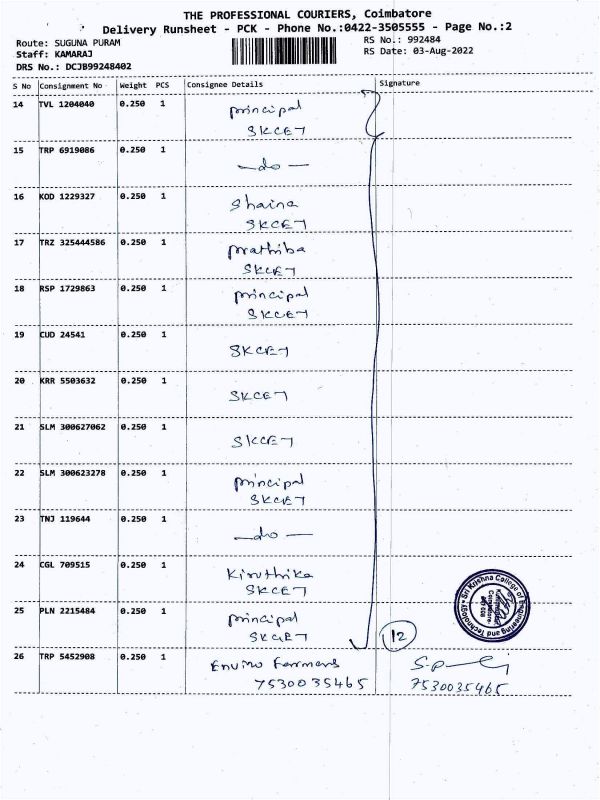 THE PROFESSIONAL COURIERS, Coimbatore
Delivery Runsheet - PCK - Phone No.:0422-3505555 - Page No.:2
Route: SUGUNA PURAM
RS No.: 992484
Staff: KAMARAJ
RS Date: 03-Aug-2022
DRS No.: DCJB99248402
S No Consignment No Weight PCS Consignee Details Signature
14 TVL 1204040 0.250 1 principal
SKCET
15 TRP 6919086 0.250 1 —do—
16 KOD 1229327 0.250 1 Shaina
SKCET
17 TRZ 325444586 0.250 1 prathiba
SKCET
18 RSP 1729863 0.250 1 principal
SKCET
19 CUD 24541 0.250 1 SKCET
20 KRR 5503632 0.250 1 SKCET
21 SLM 300627062 0.250 1 SKCET
22 SLM 300623278 0.250 1 principal
SKCET
23 TNJ 119644 0.250 1 —do—
24 CGL 709515 0.250 1 Kiruthika
SKCET
25 PLN 2215484 0.250 1 principal
SKCET
12
Sri Krishna College of Engineering and Technology
Coimbatore
26 TRP 5452908 0.250 1 Enviro Farmers
7530035465
7530035465